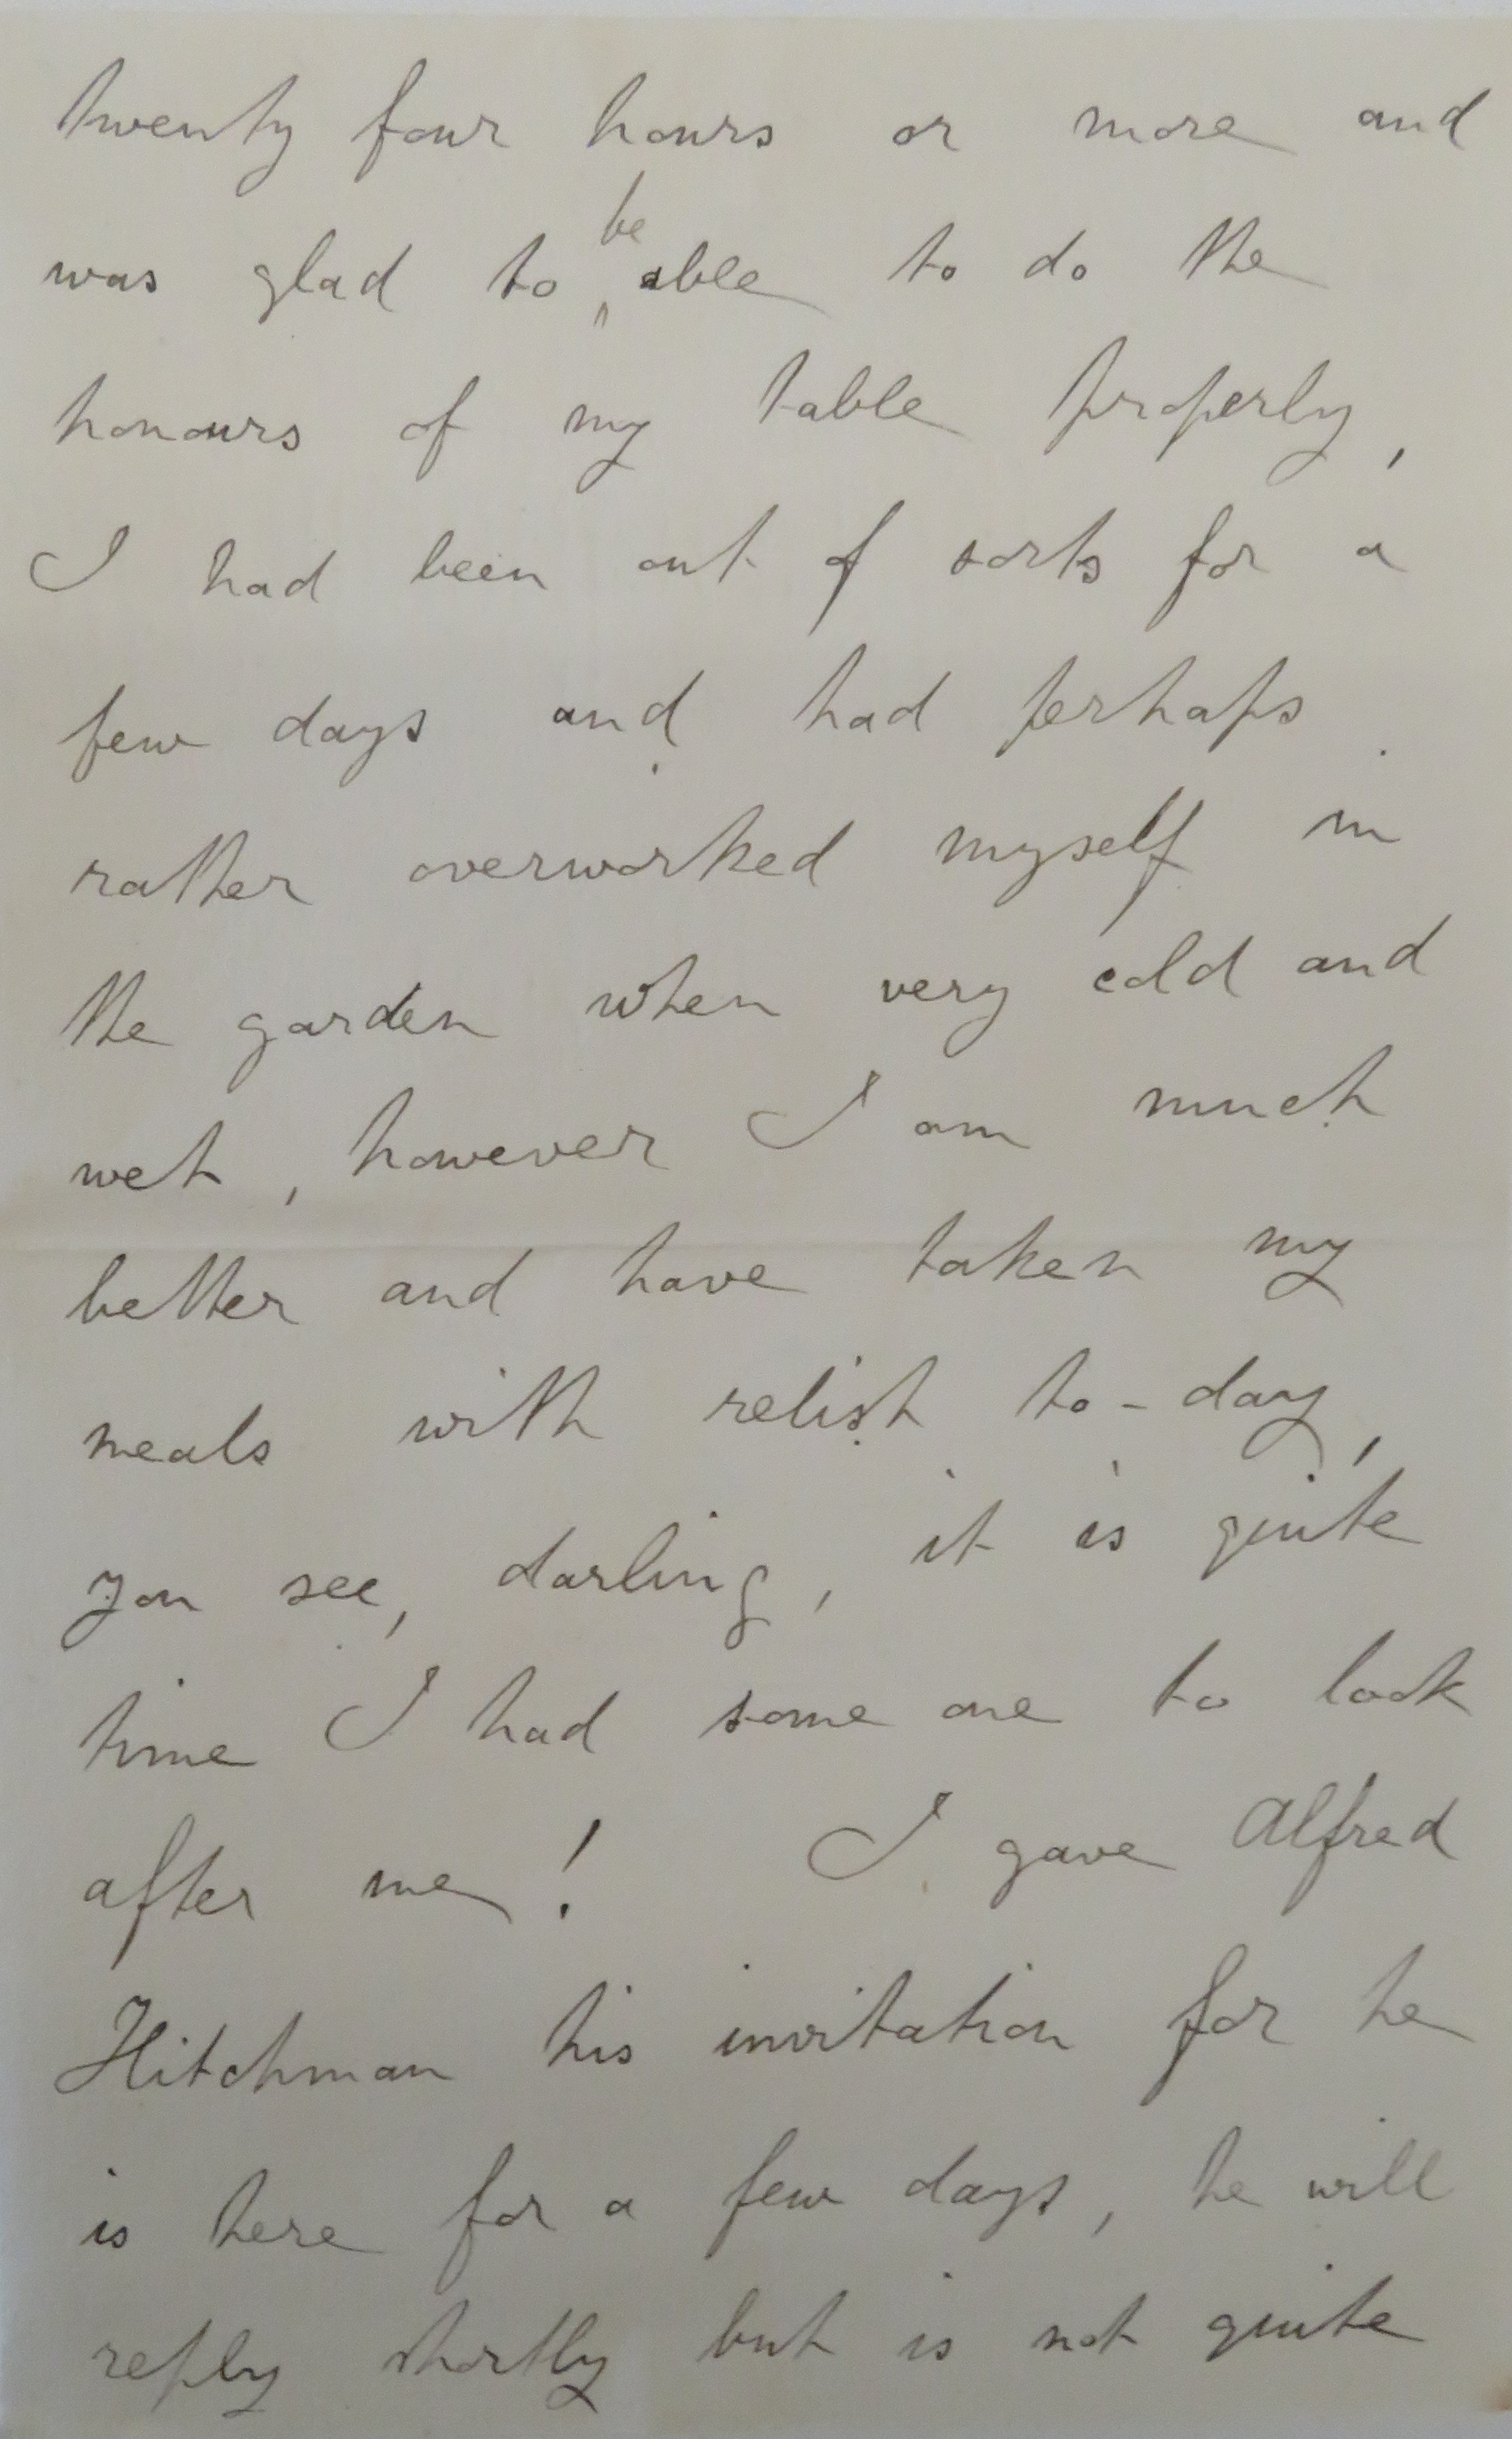 twenty four hours or more and
was glad to be able to do the
honours of my table properly,
I had been out of sorts for a
few days and had perhaps
rather overworked myself in
the garden when very cold and
wet, however I am much
better and have taken my
meals with relish to-day,
you see, darling, it is quite
time I had some one to look
after me! I gave Alfred
Hitchman his invitation for he
is here for a few days, he will
reply shortly but is not quite